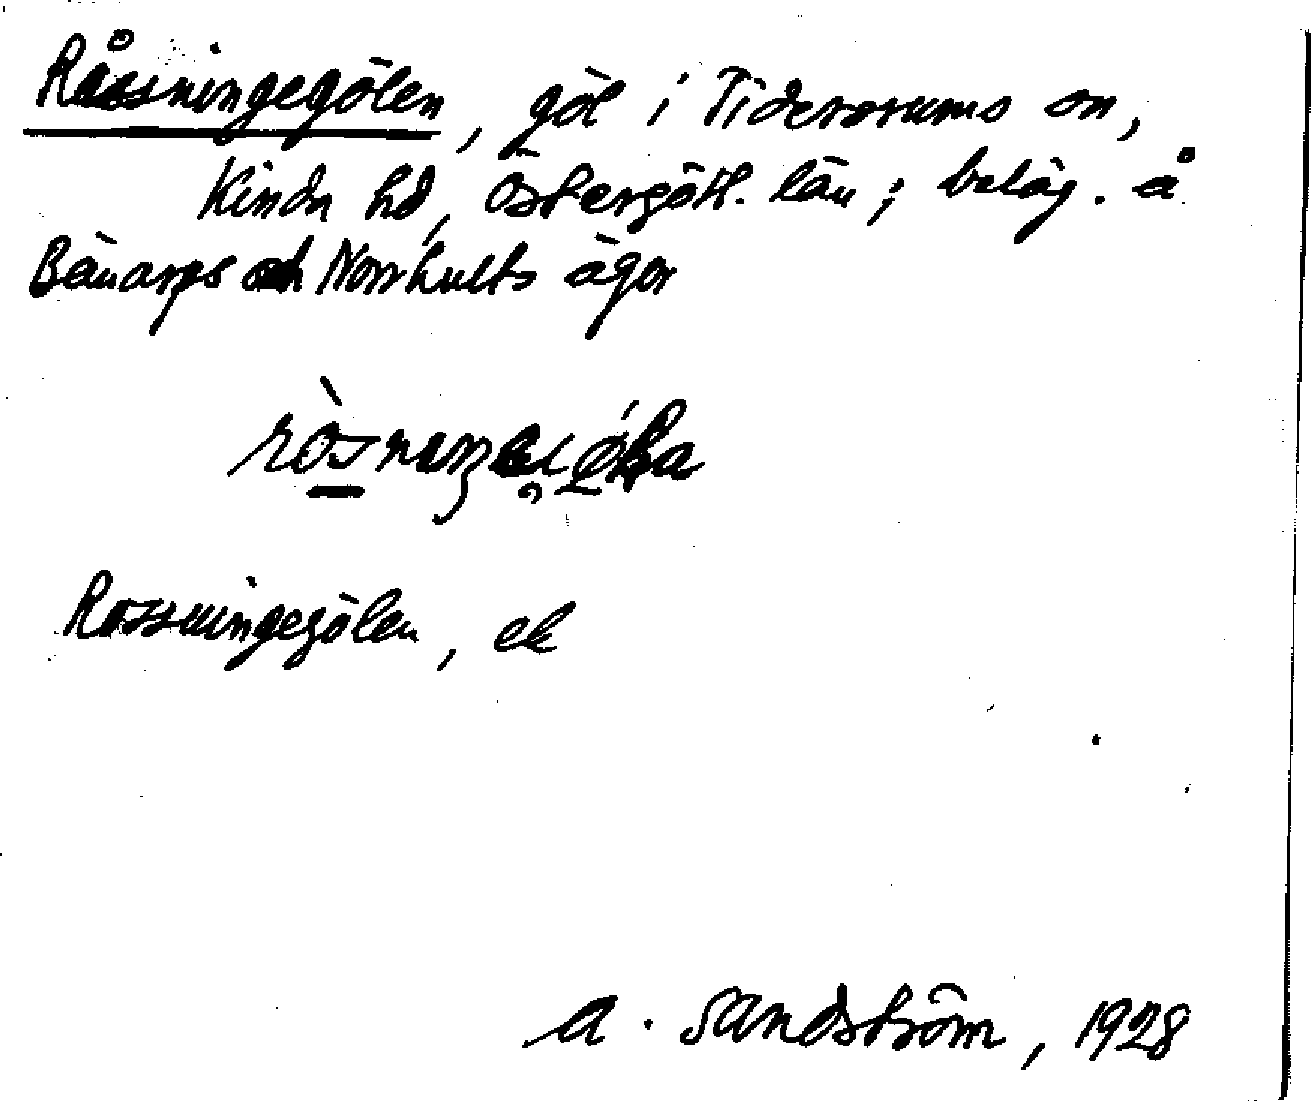 Råssningegölen, göl i Tidersrums sn,
Kinda hd, Östergötl. län; beläg. å
Bänarps och Norrhults ägor
Rossningegölen, ek
A. Sandström, 1928